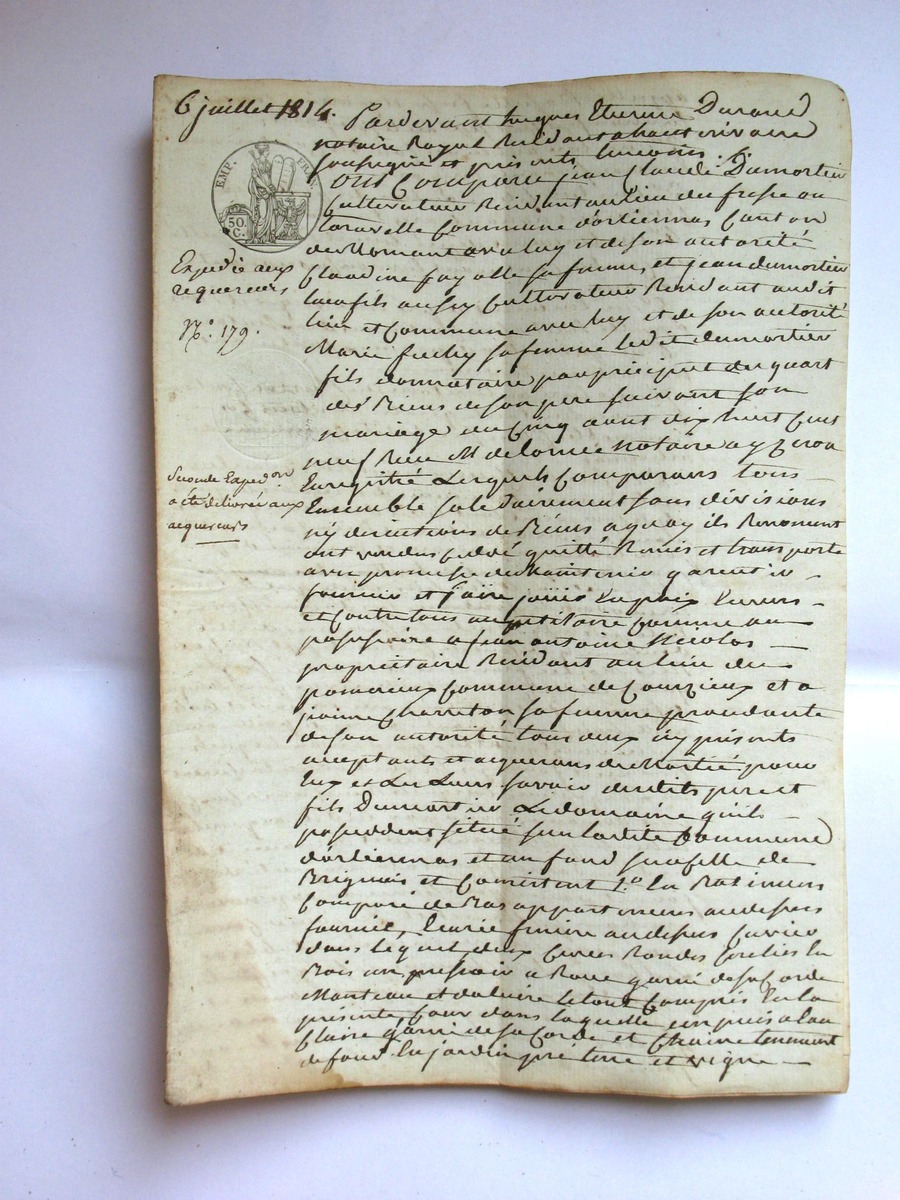 6 juillet 1814.
Pardevant hugues Etienne Durand
notaire Royal Residant a haute riviere
soussigné et présents temoins
Ont Comparu jean Claude Dumortier
Cultivateur Residant au lieu du fresse ou
taravelle Commune d'orliennas Canton
de mornant avec luy et de son autorité
Claudine fayolle sa femme, et jean dumortier
leur fils aussy Cultivateur Residant audit
lieu et Commune avec luy et de son autorité
Marie sa femme ledit dumortier
fils donnataire par preciput du quart
des Biens de son pere suivant son
mariage du Cinq aout dix huit Cent
neuf Recu Me delorme notaire a yzeron
Enregistré Lesquels Comparans tous
Ensemble solidairement sans divisions
ny discutions de Biens a quoy ils Renoncent
ont vendus Cédé quitté Remis et transporté
avec promesse de Maintenir garentir
fournir et faire jouir En paix Envers
et Contre tous au petitoire Comme au
possessoire a jean antoine Nicolas
proprietaire Residant au lieu du
Commune de Courzieux et a
Charreton sa femme procedante
de son autorité tous deux icy présents
acceptants et acquerans de Moitié pour
Eux et Les Leurs savoir desdits pere et
fils Dumortier Le domaine qu'ils
possedent situé sur ladite Commune
d'orliennas et au fond sur celle de
Brignais et Consistant 1.º En Batimens
Composé de Bas appartemens au dessus
fournier, Ecurie feniere au dessus Cuvier
dans lequel deux Cuves Rondes Cerclées En
Bois un pressoir a Roue garni de sa Corde
Manteau et le tout Compris En la
présente, Cour dans laquelle un puis a Eau
Claire garni de sa Corde et Chaine tenement
de fond En jardin pre terre et vigne
EMP. FRAN.
50.
C.
Expedié aux
requereurs
Nº. 179.
Seconde Expedon
a été delivrée aux
acquereurs